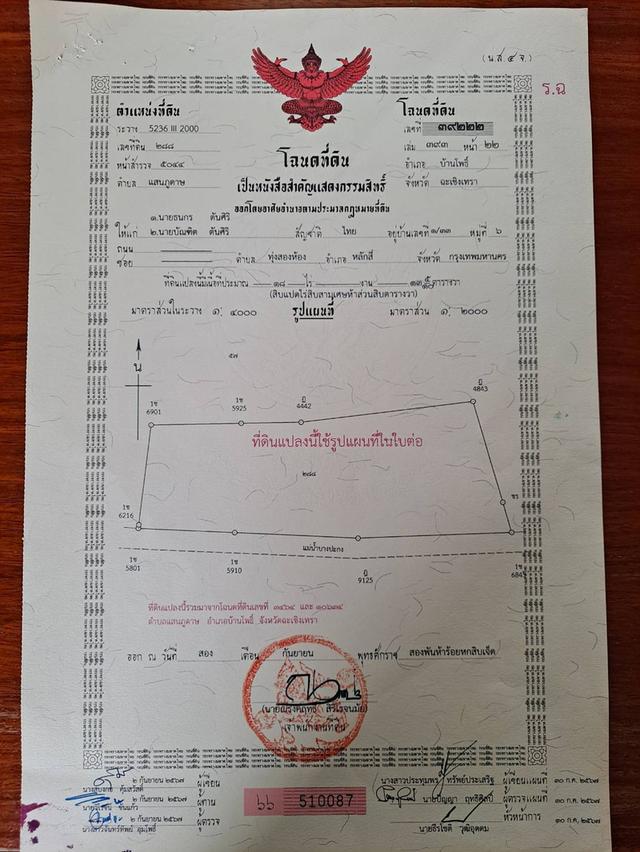 (น.ส. ๔ จ.)
ร.ฉ
ตำแหน่งที่ดิน
ระวาง 5236 III 2000
เลขที่ดิน ๒๘๘
หน้าสำรวจ ๕๐๔๔
ตำบล แสนภูดาษ
โฉนดที่ดิน
เลขที่ ๓๙๒๒๒
เล่ม ๓๙๓ หน้า ๒๒
อำเภอ บ้านโพธิ์
จังหวัด ฉะเชิงเทรา
โฉนดที่ดิน
เป็นหนังสือสำคัญแสดงกรรมสิทธิ์
ออกโดยอาศัยอำนาจตามประมวลกฎหมายที่ดิน
๑.นายธนกร ตันศิริ
ให้แก่ ๒.นายบัณฑิต ตันศิริ สัญชาติ ไทย อยู่บ้านเลขที่ ๑/๓๓ หมู่ที่ ๖
ถนน
ซอย ตำบล ทุ่งสองห้อง อำเภอ หลักสี่ จังหวัด กรุงเทพมหานคร
ที่ดินแปลงนี้มีเนื้อที่ประมาณ ๑๘ ไร่ งาน ตารางวา
(สิบแปดไร่สิบสามเศษห้าส่วนสิบตารางวา)
มาตราส่วนในระวาง ๑: ๔๐๐๐ รูปแผนที่ มาตราส่วน ๑: ๒๐๐๐
น
๕๗
1ช 6901
1ช 5925
ฎ 4442
ฎ 4843
ที่ดินแปลงนี้ใช้รูปแผนที่ในใบต่อ
๒๘๘
1ช 6216
แม่น้ำบางปะกง
1ช 5801
1ช 5910
ฎ 9125
ที่ดินแปลงนี้รวมมาจากโฉนดที่ดินเลขที่ และ
ตำบลแสนภูดาษ อำเภอบ้านโพธิ์ จังหวัดฉะเชิงเทรา
ออก ณ วันที่ สอง เดือน กันยายน พุทธศักราช สองพันห้าร้อยหกสิบเจ็ด
เจ้าพนักงานที่ดิน
๒ กันยายน ๒๕๖๗ ผู้เขียน
๒ กันยายน ๒๕๖๗ ผู้ทาน
๒ กันยายน ๒๕๖๗ ผู้ตรวจ
๖๖ 510087
นางสาวประทุมพร ทรัพย์ประเสริฐ ผู้เขียนแผนที่ ๓๐ ก.ค. ๒๕๖๗
นายปัญญา ฤทธิศิลป์ ผู้ตรวจแผนที่ ๓๐ ก.ค. ๒๕๖๗
นายธีรโชติ วุฒิอุดดม หัวหน้าการ ๓๐ ก.ค. ๒๕๖๗